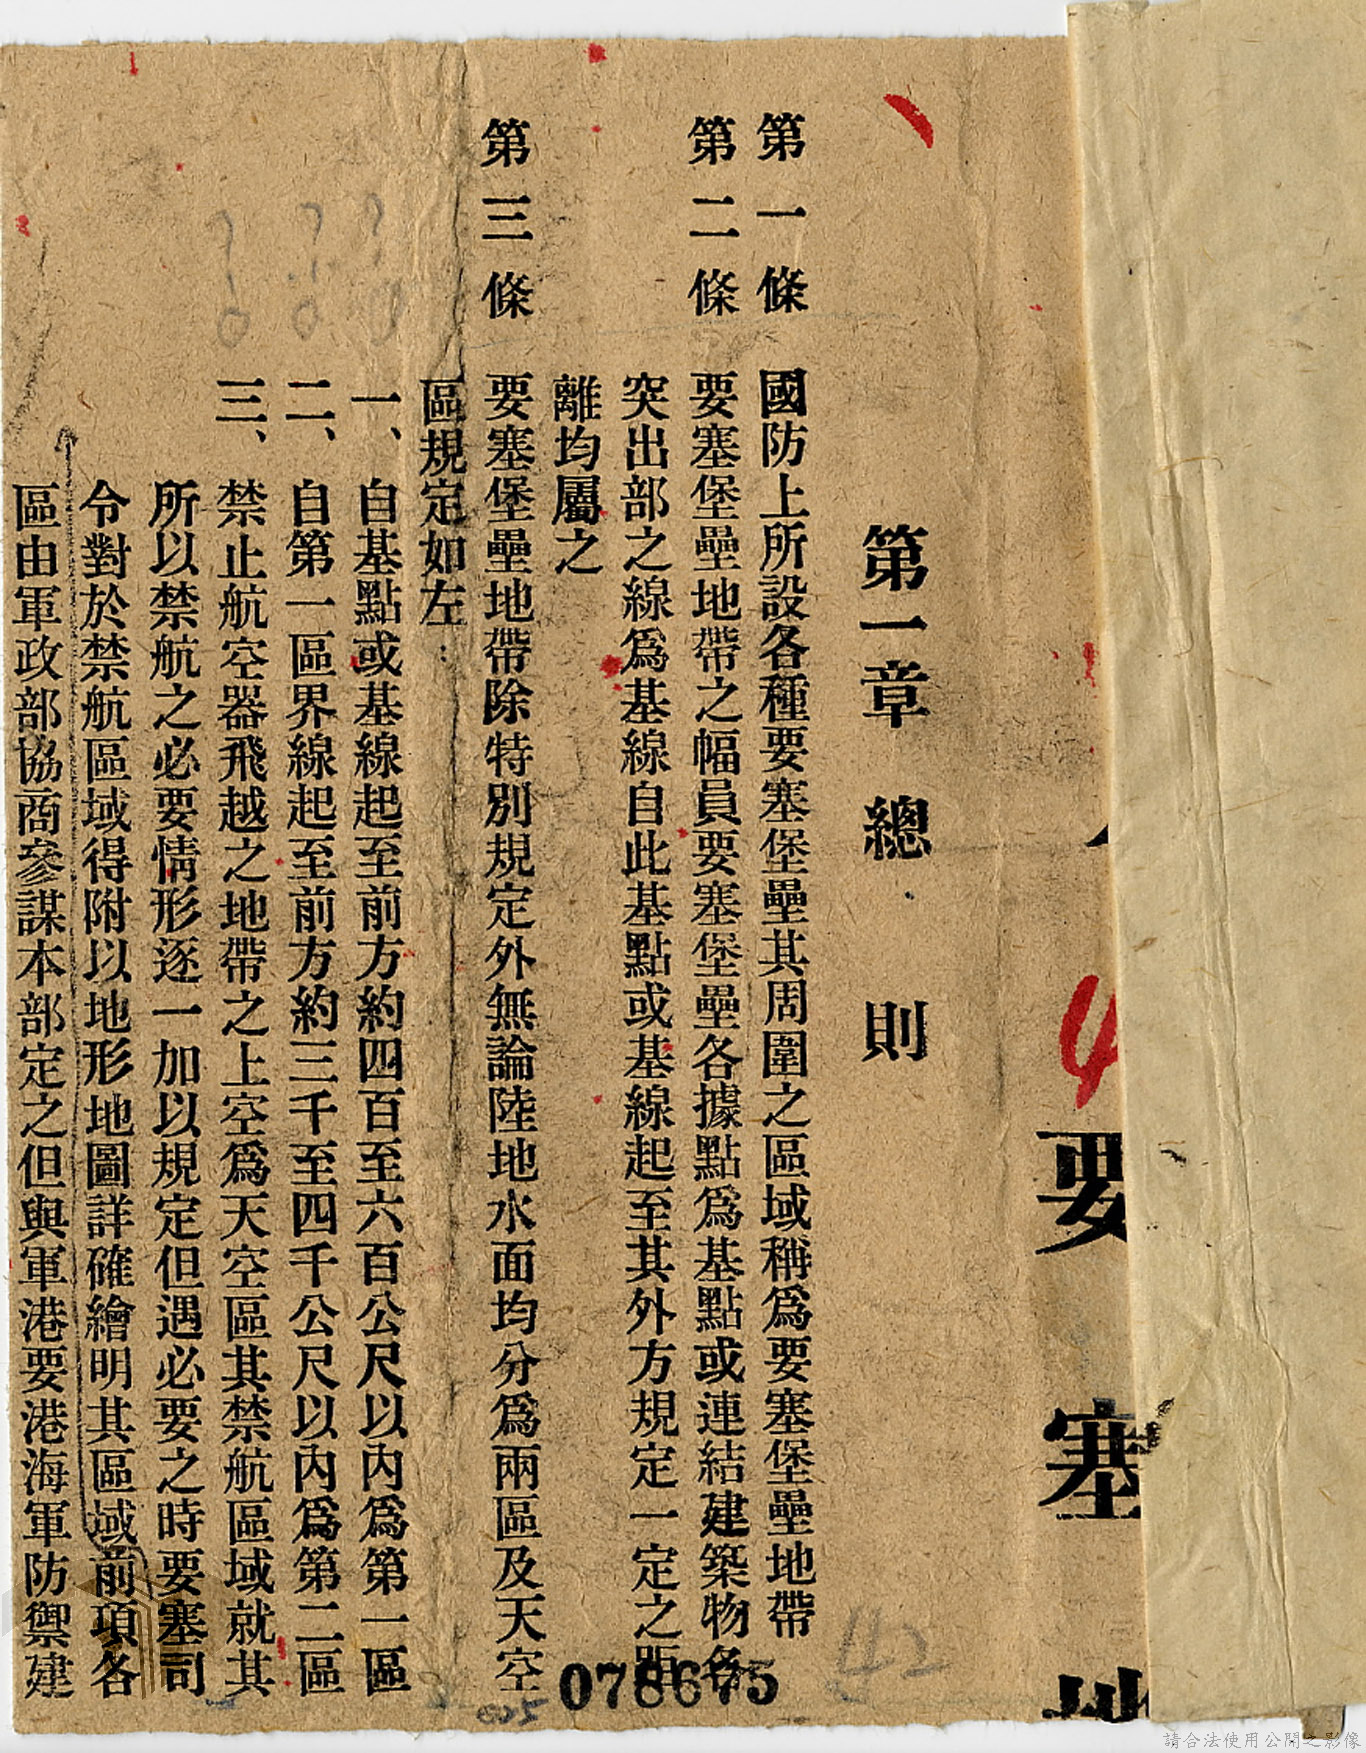 要塞地
第一章 總則
第一條 國防上所設各種要塞堡壘其周圍之區域稱爲要塞堡壘地帶
第二條 要塞堡壘地帶之幅員要塞堡壘各據點爲基點或連結建築物各
突出部之線爲基線自此基點或基線起至其外方規定一定之距
離均屬之
第三條 要塞堡壘地帶除特別規定外無論陸地水面均分爲兩區及天空
區規定如左：
一、自基點或基線起至前方約四百至六百公尺以內爲第一區
二、自第一區界線起至前方約三千至四千公尺以內爲第二區
三、禁止航空器飛越之地帶之上空爲天空區其禁航區域就其
所以禁航之必要情形逐一加以規定但遇必要之時要塞司
令對於禁航區域得附以地形地圖詳確繪明其區域前項各
區由軍政部協商參謀本部定之但與軍港要港海軍防禦建
42
078675
請合法使用公開之影像